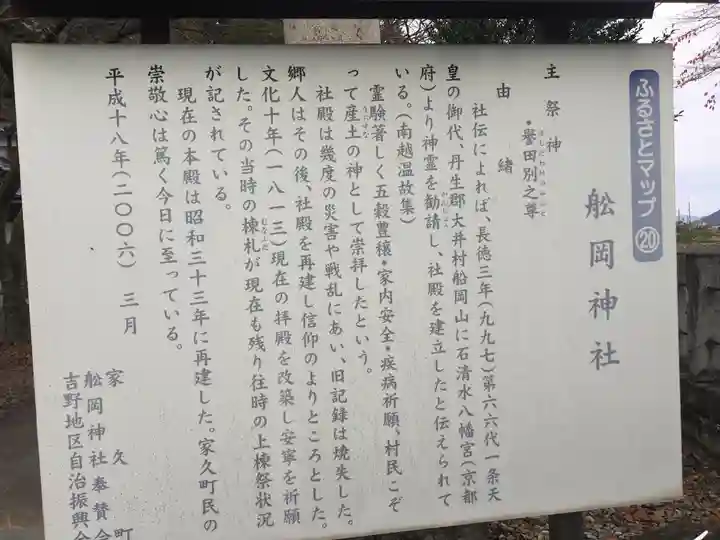 ふるさとマップ ⑳
舩岡神社
主祭神
・誉田別之尊
由緒
社伝によれば、長徳三年(九九七)第六六代一条天
皇の御代、丹生郡大井村船岡山に石清水八幡宮(京都
府)より神霊を勧請し、社殿を建立したと伝えられて
いる。(南越温故集)
霊験著しく五穀豊穣・家内安全・疾病祈願、村民こぞ
って産土の神として崇拝したという。
社殿は幾度の災害や戦乱にあい、旧記録は焼失した。
郷人はその後、社殿を再建し信仰のよりところとした。
文化十年(一八一三)現在の拝殿を改築し安寧を祈願
した。その当時の棟札が現在も残り往時の上棟祭状況
が記されている。
現在の本殿は昭和三十三年に再建した。家久町民の
崇敬心は篤く今日に至っている。
平成十八年(二〇〇六)三月
家久町
舩岡神社奉賛会
吉野地区自治振興会